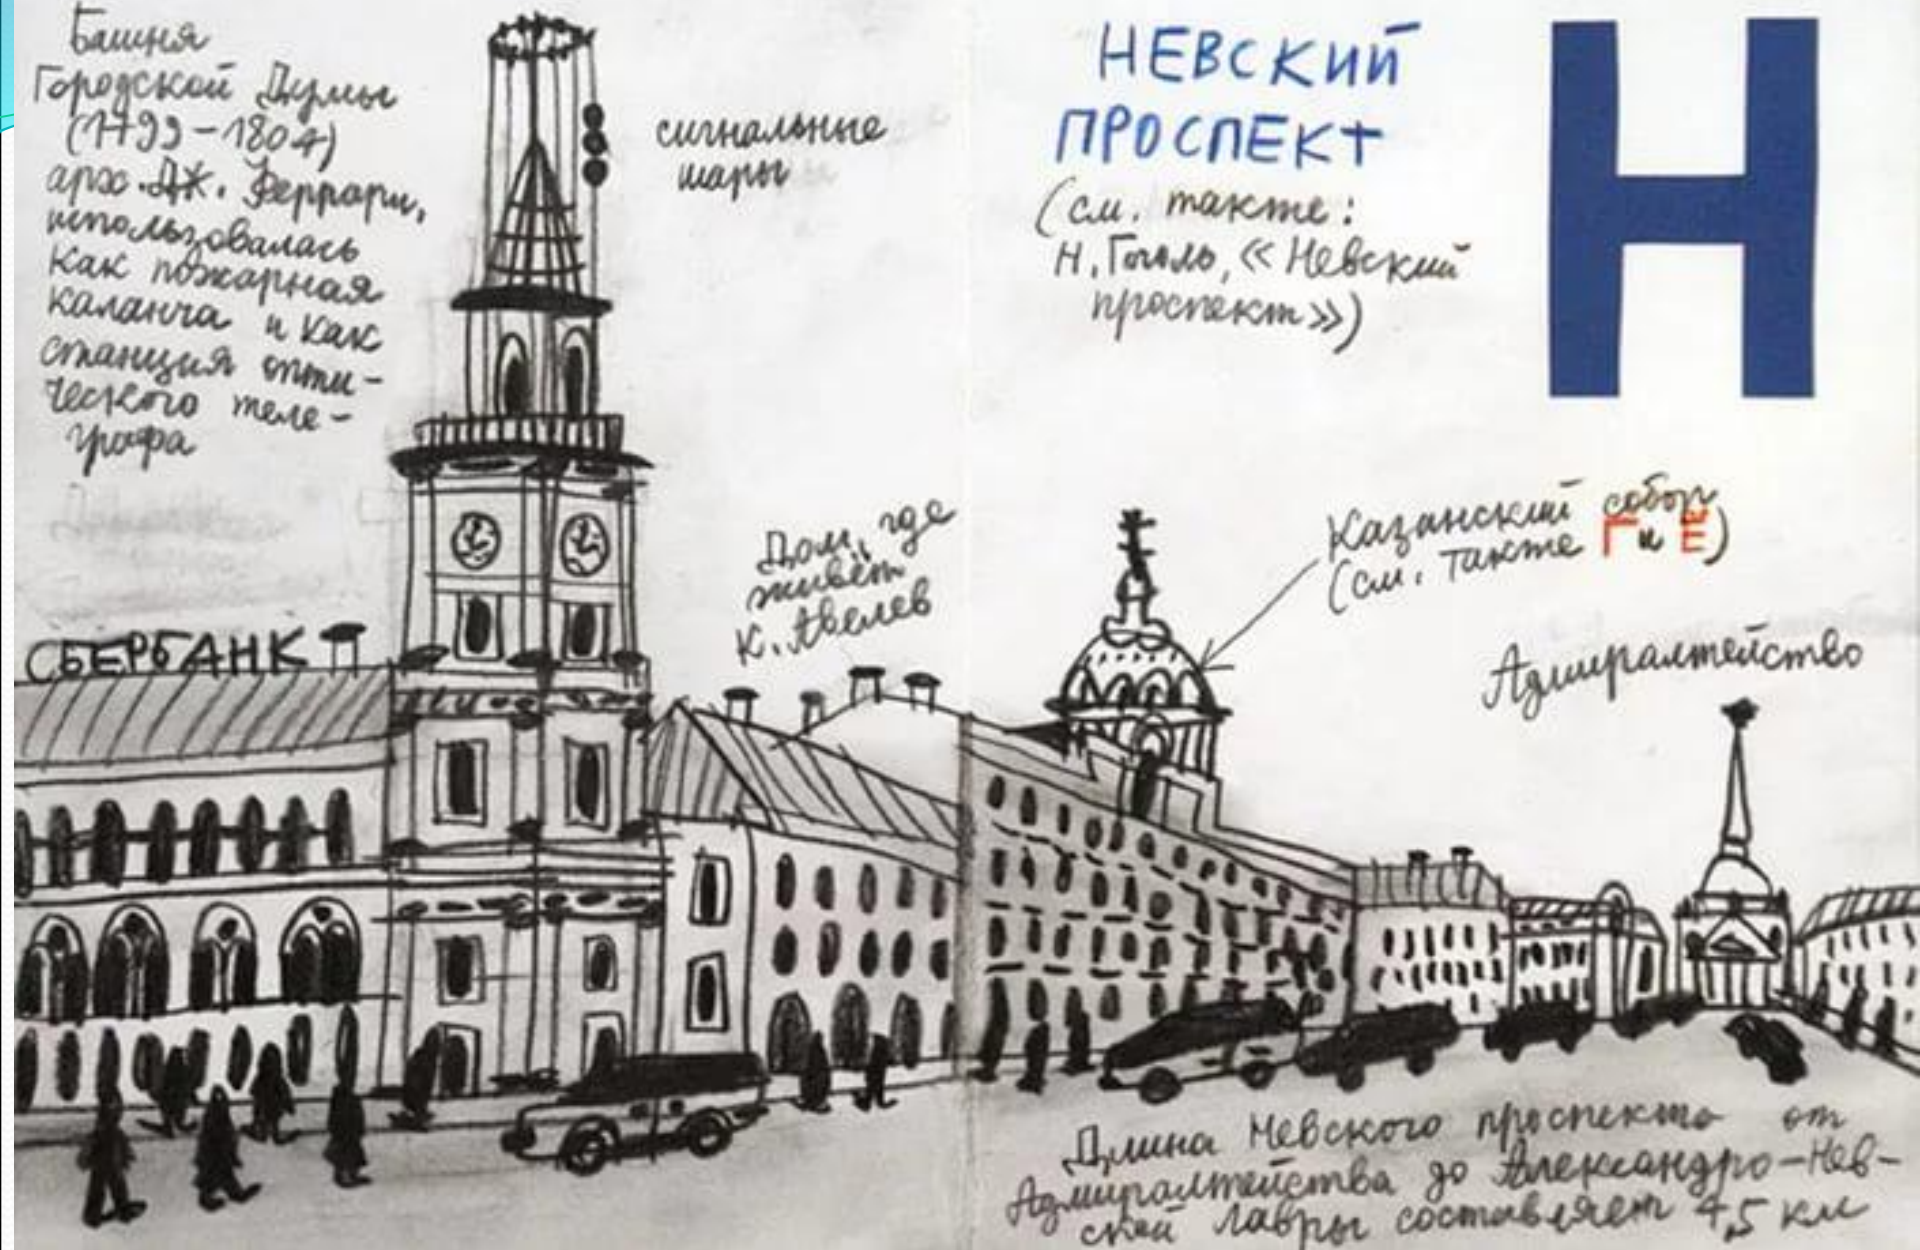 Башня
Городской Думы
(1799–1804)
арх. Дж. Феррари,
использовалась
как пожарная
каланча и как
станция опти-
ческого теле-
графа
сигнальные
шары
НЕВСКИЙ
ПРОСПЕКТ
(см. также:
Н. Гоголь, «Невский
проспект»)
Н
Дом, где
живёт
К. Авелев
Казанский собор
(см. также Г и Е)
Адмиралтейство
СБЕРБАНК
Длина Невского проспекта от
Адмиралтейства до Александро-Нев-
ской Лавры составляет 4,5 км